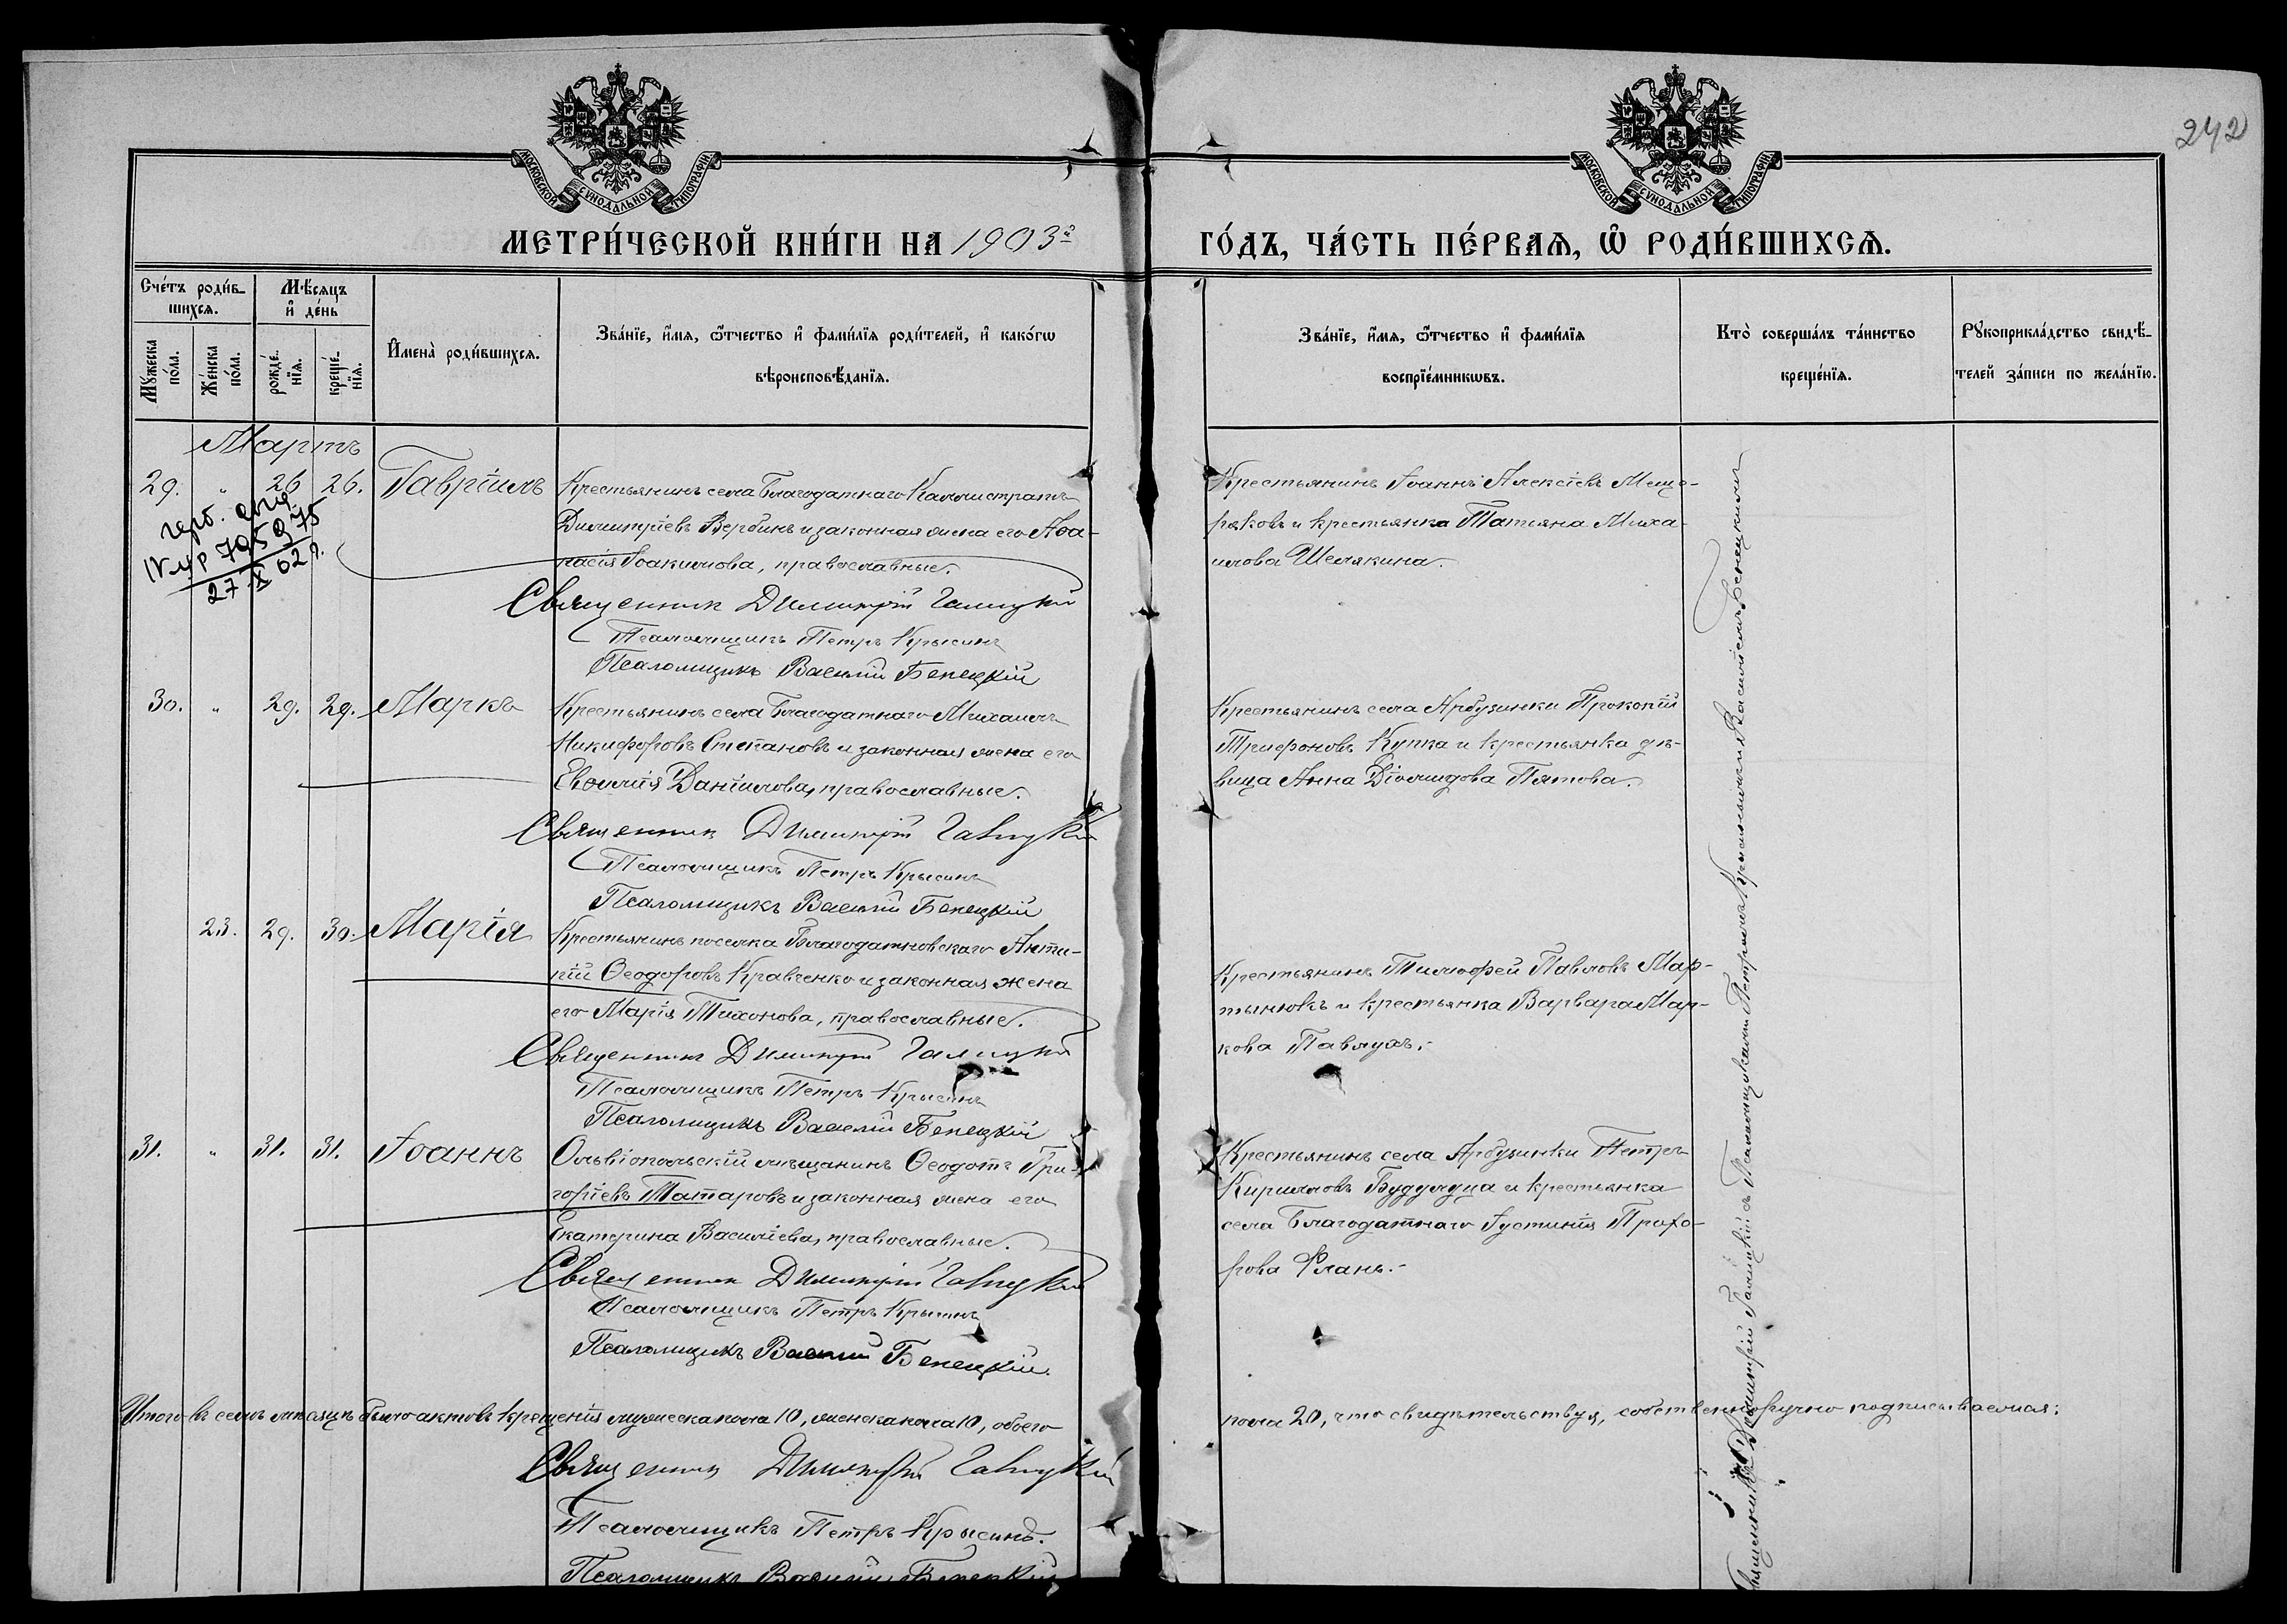 242
МОСКОВСКОЙ СѴНОДАЛЬНОЙ ТИПОГРАФІИ
МОСКОВСКОЙ СѴНОДАЛЬНОЙ ТИПОГРАФІИ
МЕТРИ́ЧЕСКОЙ КНИ́ГИ НА 1903 г
ГО́ДЪ, ЧА́СТЬ ПЕ́РВАѦ, Ѿ РОДИ́ВШИХСѦ.
Сче́тъ роди́в-
шихсѧ.
Мѣ́сѧцъ
и҆ де́нь
Мꙋ́жеска
по́ла.
Же́нска
по́ла.
рожде́-
нїѧ.
креще́-
нїѧ.
И҆мена̀ роди́вшихсѧ.
Зва́нїе, и҆́мѧ, ѻ҆́тчество и҆ фами́лїѧ роди́телей, и҆ како́гѡ
вѣроисповѣ́данїѧ.
Зва́нїе, и҆́мѧ, ѻ҆́тчество и҆ фами́лїѧ
воспрїе́мникѡвъ.
Кто̀ соверша́лъ та́инство
креще́нїѧ.
Рꙋкоприкла́дство свидѣ́-
телей за́писи по жела́нїю.
Мартъ
29. " 26 26. Гавріилъ
Крестьянинъ села Благодатнаго Каллистратъ
Димитріевъ Вербинъ и законная жена его Аѳа-
насія Іоакимова, православные.
Священник Димитрій Галицкій
Псаломщикъ Петръ Крысинъ
Псаломщикъ Василій Бенецкій
27 X 62 г.
Крестьянинъ Іоаннъ Алексіевъ Меще-
ряковъ и крестьянка Татіана Миха-
илова Шелякина.
30. " 29. 29. Маркъ
Крестьянинъ села Благодатнаго Михаилъ
Никифоровъ Степановъ и законная жена его
Евѳимія Даніилова, православные.
Священник Димитрій Галицкій
Псаломщикъ Петръ Крысинъ
Псаломщикъ Василій Бенецкій
Крестьянинъ села Арбузинки Прокопій
Трифоновъ Купка и крестьянка дѣ-
вица Анна Діомидова Пятова.
23. 29. 30. Марія
Крестьянинъ поселка Благодатновскаго Анти-
пій Ѳеодоровъ Кравченко и законная жена
его Марія Тихонова, православные.
Священникъ Димитрій Галицкій
Псаломщикъ Петръ Крысинъ
Псаломщикъ Василій Бенецкій
Крестьянинъ Тимофей Павловъ Мар-
тынюкъ и крестьянка Варвара Мар-
кова
31. " 31. 31. Іоаннъ
Ольвіопольскій мѣщанинъ Ѳеодотъ Гри-
горіевъ Татаровъ и законная жена его
Екатерина Василіева, православные.
Священник Димитрій Галицкій
Псаломщикъ Петръ Крысинъ
Псаломщикъ Василій Бенецкій.
Крестьянинъ села Арбузинки Петръ
Кирилловъ и крестьянка
села Благодатнаго Іустинія Прохо-
рова
Священникъ Димитрій Галицкій съ Псаломщиками Петромъ Крысинымъ и Василіемъ Бенецкимъ
Итого въ семъ мѣсяцѣ было актовъ крещенія мужеска пола 10, женска пола 10, обоего
пола 20, что свидѣтельствуя, собственноручно подписываемся:
Священник Димитрій Галицкій
Псаломщикъ Петръ Крысинъ.
Псаломщикъ Василій Бенецкій